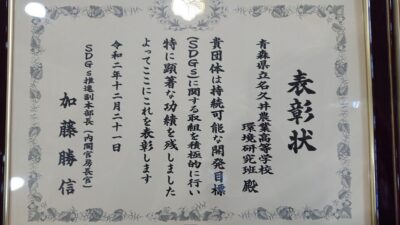 表彰状
青森県立名久井農業高等学校
環境研究班 殿
貴団体は持続可能な開発目標
(SDGs)に関する取組を積極的に行い
特に顕著な功績を残しました
よってここにこれを表彰します
令和二年十二月二十一日
SDGs推進副本部長(内閣官房長官)
加藤勝信